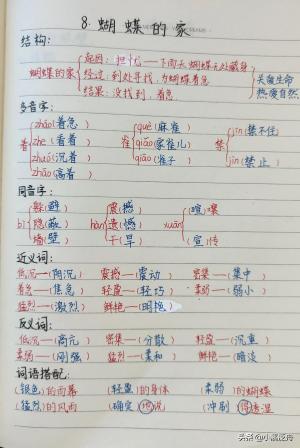 8. 蝴蝶的家
结构:
起因: 担忧——下雨天蝴蝶无处藏身
蝴蝶的家 经过: 到处寻找,为蝴蝶着急 关爱生命
结果: 没找到,着急 热爱自然
多音字:
zháo(着急) què(麻雀) jīn(禁不住)
着 zhe(看着) 雀 qiǎo(家雀儿) 禁
zhuó(沉着) qiāo(雀子) jìn(禁止)
zhāo(高着)
同音字:
躲(避) 震(撼) (喧)嚷
bì 隐(蔽) hàn 遗(憾) xuān
墙(壁) 干(旱) (宣)传
近义词:
低沉——(阴沉) 震撼——(震动) 密集——(集中)
着急——(焦急) 轻盈——(轻巧) 柔弱——(弱小)
猛烈——(激烈) 鲜艳——(明艳)
反义词:
低沉——(高亢) 密集——(分散) 轻盈——(沉重)
柔弱——(刚强) 猛烈——(柔和) 鲜艳——(暗淡)
词语搭配:
(银色)的雨幕 (轻盈)的身体 (柔弱)的蝴蝶
(猛烈)的风雨 (确定)地说 (冲刷)得透湿
头条 @小戚老师